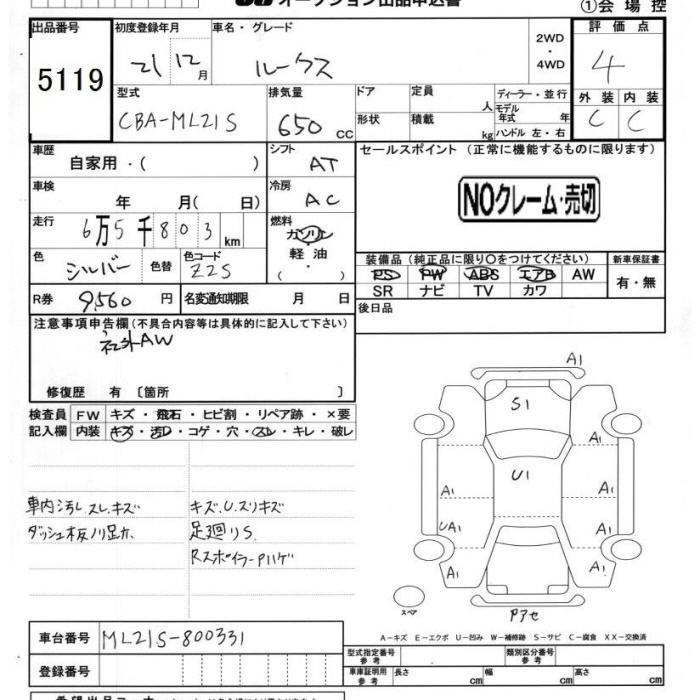 オークション出品申込書
①会場控
出品番号 初度登録年月 車名・グレード 評価点
5119 21 12月 ルークス 2WD ・ 4WD 4
型式 排気量 ドア 定員 人 ディーラー・並行 外装 内装
CBA-ML21S 650 CC 形状 積載 kg モデル年式 年 ハンドル 左・右 C C
車歴 シフト セールスポイント (正常に機能するものに限ります)
自家用・( ) AT
車検 冷房
年 月( 日) AC NOクレーム・売切
走行 燃料
6万5千803km ガソリン
色 色替 色コード 軽油 装備品 (純正品に限り○をつけてください) 新車保証書
シルバー Z2S ・ PS PW ABS エアB AW 有・無
( ) SR ナビ TV カワ
R券 9,560円 名変通知期限 月 日 後日品
注意事項申告欄(不具合内容等は具体的に記入して下さい)
社外AW
修復歴 有 〔箇所 〕
検査員 FW キズ・飛石・ヒビ割・リペア跡・×要
記入欄 内装 キズ・汚レ・コゲ・穴・スレ・キレ・破レ
車内汚レ.スレ.キズ キズ.U.スリキズ
足廻りS.
RスポイラーPハゲ
A1
S1
A1 A1
U1
A1 A1
UA1 A1
A1 A1
スペア
Pアセ
A-キズ E-エクボ U-凹み W-補修跡 S-サビ C-腐食 XX-交換済
車台番号 ML21S-800331
型式指定番号 参考 類別区分番号 参考
登録番号 車庫証明用 参考 長さ cm 幅 cm 高さ cm